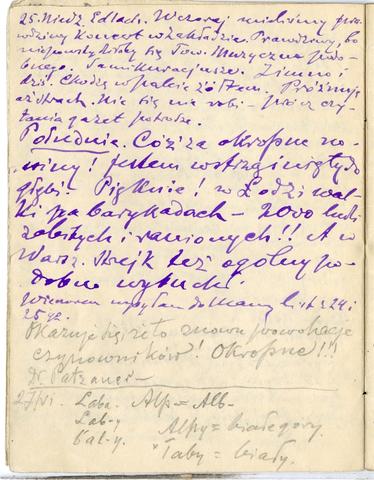 25. Niedz. Edlach. Wczoraj mieliśmy pra-
wdziwy koncert w zakładzie. Prawdziwy, bo
nie powstydziłoby się Tow. Muzyczne po-
bnego. Sami kuracjusze. Zimno i
dziś. Chodzę w palcie żółtem. Próżnuję
aż strach. Nic się nie robi – prócz czy-
tania gazet potrosze.
Południe. Cóż za okropne no-
winy! Jestem wstrząśnięty do
głębi. Pięknie! w Łodzi wal-
ki na barykadach – 2000 ludzi
zabitych i ranionych!! A w
Warsz. strejk też ogólny po-
dobno wybuchł.
Wieczorem wysłałem do Mamy list z 24 i
25 cz.
Okazuje się, że to znowu prowokacje
czynowników! Okropne!!!
Dr.
27/VI. Laba. Alp = Alb-
Lab-y Alpy = białe góry.
Bal-y. *Łaby = biały.